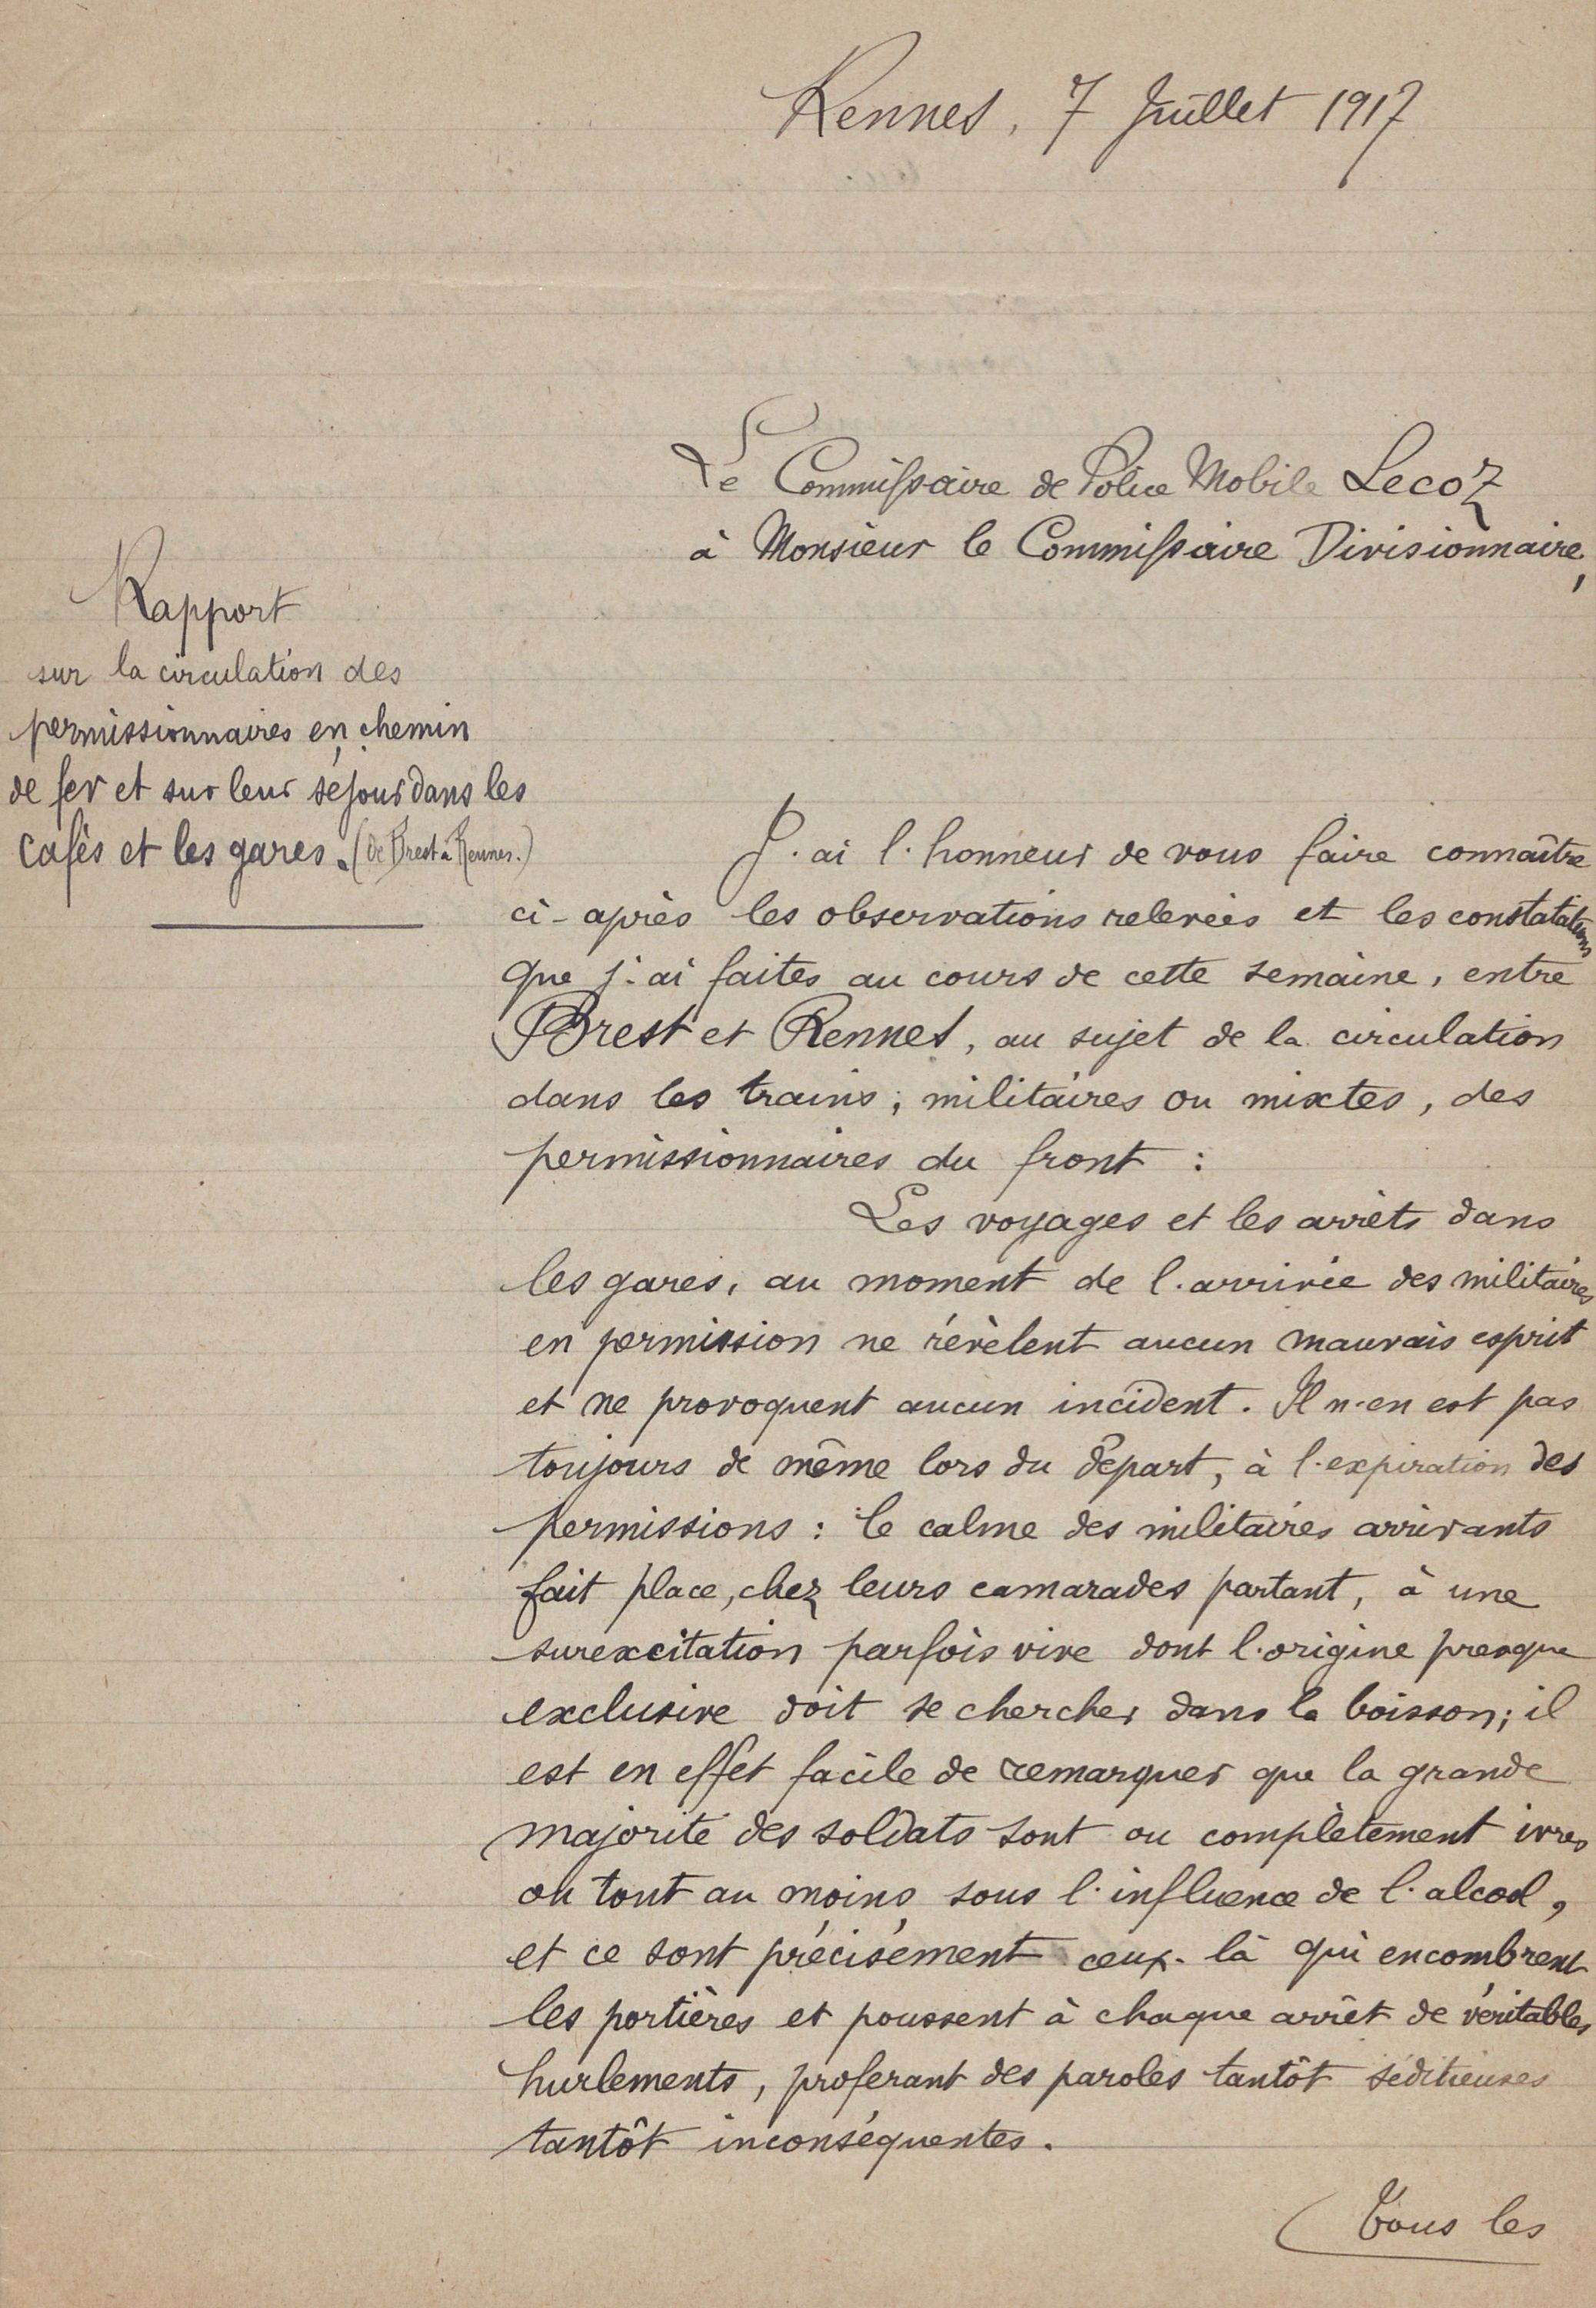 Rennes, 7 Juillet 1917
Le Commissaire de Police Mobile Lecoz
à Monsieur le Commissaire Divisionnaire,
Rapport
sur la circulation des
permissionnaires en chemin
de fer et sur leur séjour dans les
cafés et les gares. (de Brest à Rennes.)
J'ai l'honneur de vous faire connaître
ci-après les observations relevées et les constatations
que j'ai faites au cours de cette semaine, entre
Brest et Rennes, au sujet de la circulation
dans les trains, militaires ou mixtes, des
permissionnaires du front :
Les voyages et les arrêts dans
les gares, au moment de l'arrivée des militaires
en permission ne révèlent aucun mauvais esprit
et ne provoquent aucun incident. Il n'en est pas
toujours de même lors du départ, à l'expiration des
permissions : le calme des militaires arrivants
fait place, chez leurs camarades partant, à une
surexcitation parfois vive dont l'origine presque
exclusive doit se chercher dans la boisson; il
est en effet facile de remarquer que la grande
majorité des soldats sont ou complètement ivres
ou tout au moins sous l'influence de l'alcool,
et ce sont précisément ceux-là qui encombrent
les portières et poussent à chaque arrêt de véritables
hurlements, proferant des paroles tantôt séditieuses
tantôt inconséquentes.
Tous les